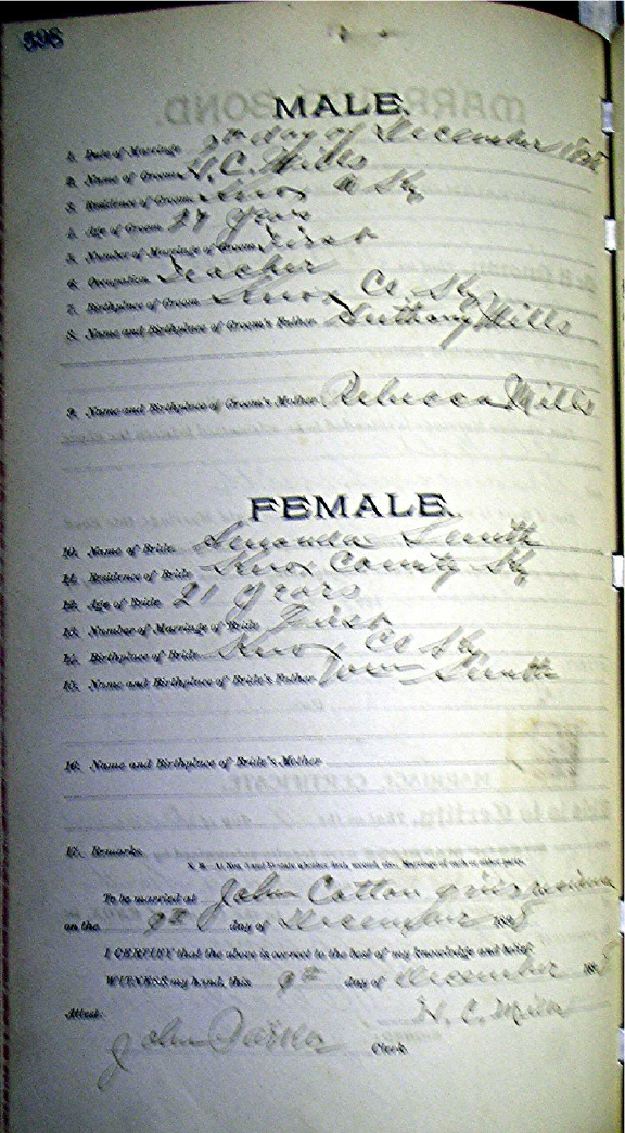 596
MALE.
1. Date of Marriage 9th day of December 188
2. Name of Groom H. C. Mills
3. Residence of Groom Knox Co Ky
4. Age of Groom 27 years
5. Number of Marriage of Groom First
6. Occupation Teacher
7. Birthplace of Groom Knox Co Ky
8. Name and Birthplace of Groom's Father Anthony Mills
9. Name and Birthplace of Groom's Mother Rebecca Mills
FEMALE.
10. Name of Bride Amanda Smith
11. Residence of Bride Knox County Ky
12. Age of Bride 21 years
13. Number of Marriage of Bride First
14. Birthplace of Bride Knox Co Ky
15. Name and Birthplace of Bride's Father Wm Smith
16. Name and Birthplace of Bride's Mother
17. Remarks
To be married at John Cotton
on the 9th day of December 1888
I CERTIFY that the above is correct to the best of my knowledge and belief.
WITNESS my hand, this 9th day of December 188
Attest: H. C. Mills
John Parker Clerk